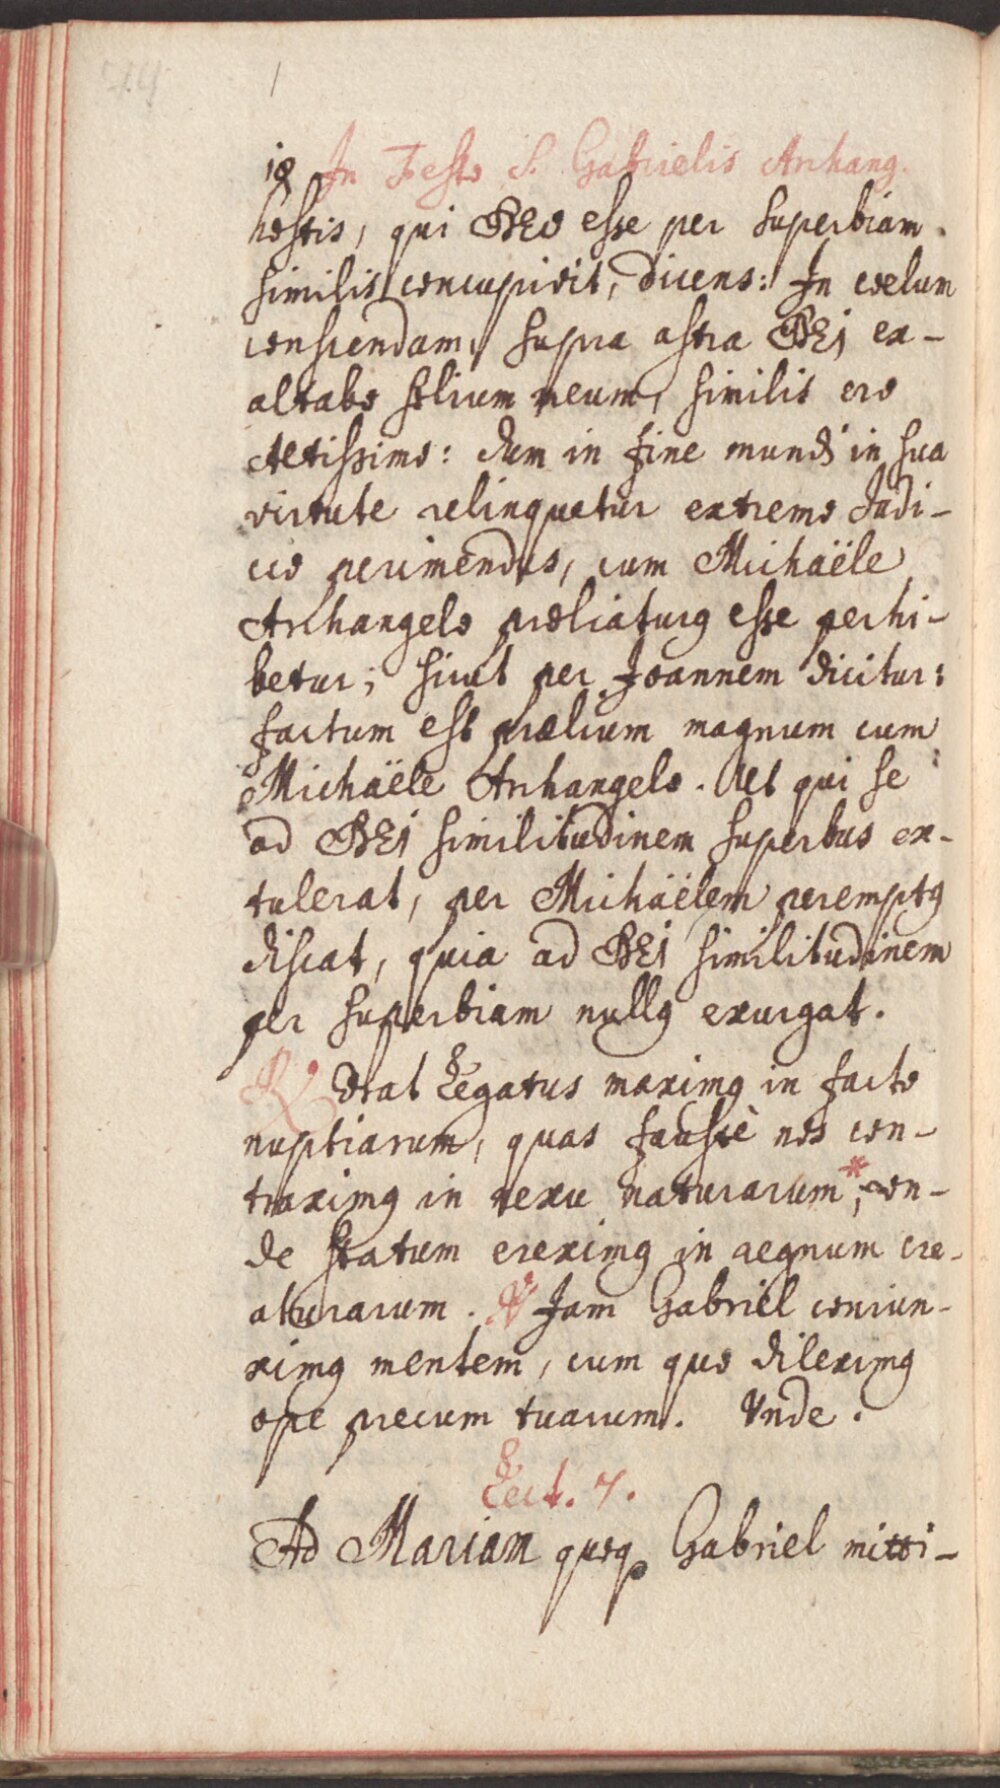 18 In Festo S. Gabrielis Archang.
hostis, qui DEO esse per superbiam
similis concupivit, dicens: In coelum
conscendam, supra astra DEI ex-
altabo solium meum, similis ero
Altissimo: dum in fine mundi in sua
virtute relinquetur extremo Judi-
cio perimendus, cum Michaële
Archangelo prœliaturꝰ esse perhi-
betur; sicut per Joannem dicitur:
factum est prælium magnum cum
Michaële Archangelo. Ut qui se
ad DEI similitudinem superbus ex-
tulerat, per Michaëlem peremptꝰ
discat, quia ad DEI similitudinem
per superbiam nullꝰ exurgat.
℟ Legatus maximꝰ in facto
nuptiarum, quas faustè nos con-
traximꝰ in nexu naturarum *,
de statum ereximꝰ in regnum cre-
aturarum. ℣ Jam Gabriel coniun-
ximꝰ mentem, cum quo dileximꝰ
ope precum tuarum. Unde.
Lect. 7.
Ad MARIAM quoqꝫ Gabriel mitti-